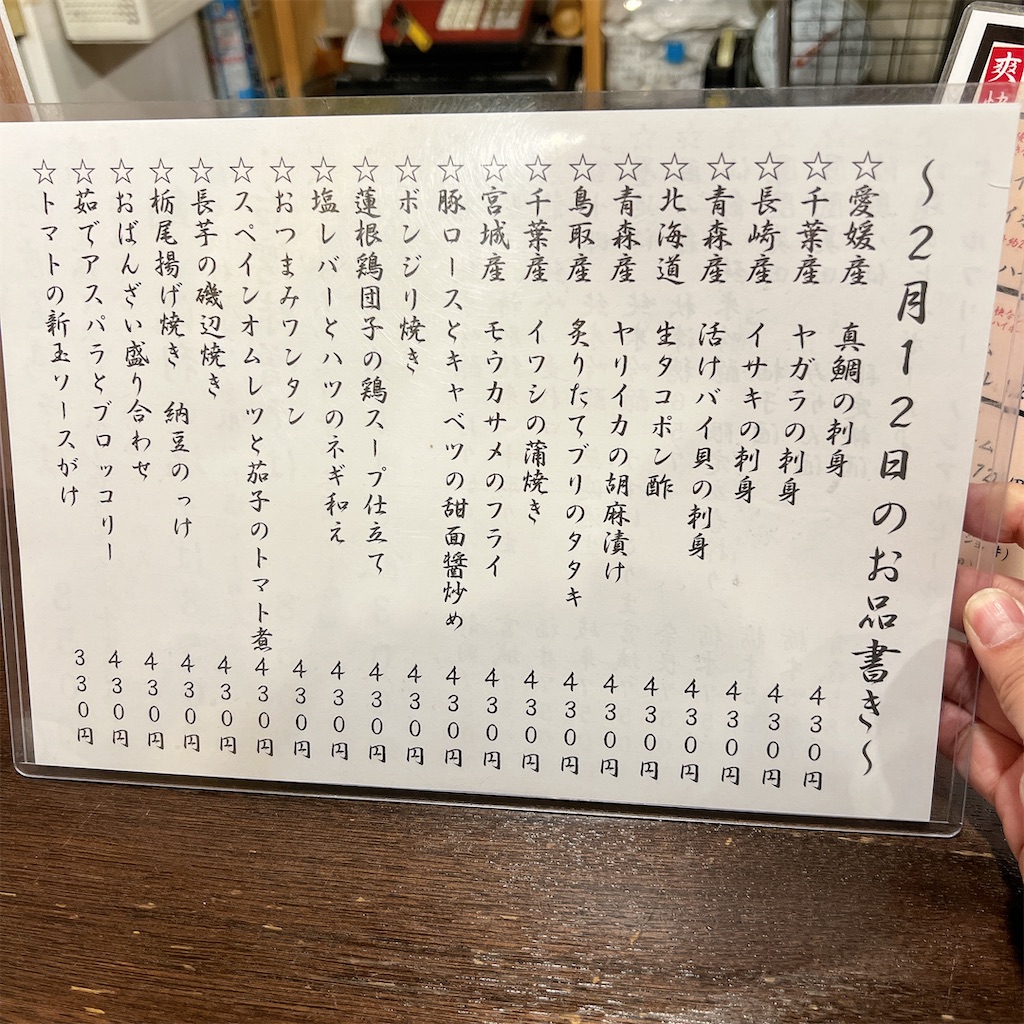 ～２月１２日のお品書き～
☆愛媛産　真鯛の刺身　４３０円
☆千葉産　ヤガラの刺身　４３０円
☆長崎産　イサキの刺身　４３０円
☆青森産　活けバイ貝の刺身　４３０円
☆北海道　生タコポン酢　４３０円
☆青森産　ヤリイカの胡麻漬け　４３０円
☆鳥取産　炙りたてブリのタタキ　４３０円
☆千葉産　イワシの蒲焼き　４３０円
☆宮城産　モウカサメのフライ　４３０円
☆豚ロースとキャベツの甜面醤炒め　４３０円
☆ボンジリ焼き　４３０円
☆蓮根鶏団子の鶏スープ仕立て　４３０円
☆塩レバーとハツのネギ和え　４３０円
☆おつまみワンタン　４３０円
☆スペインオムレツと茄子のトマト煮　４３０円
☆長芋の磯辺焼き　４３０円
☆栃尾揚げ焼き　納豆のっけ　４３０円
☆おばんざい盛り合わせ　４３０円
☆茹でアスパラとブロッコリー　４３０円
☆トマトの新玉ソースがけ　３３０円
爽